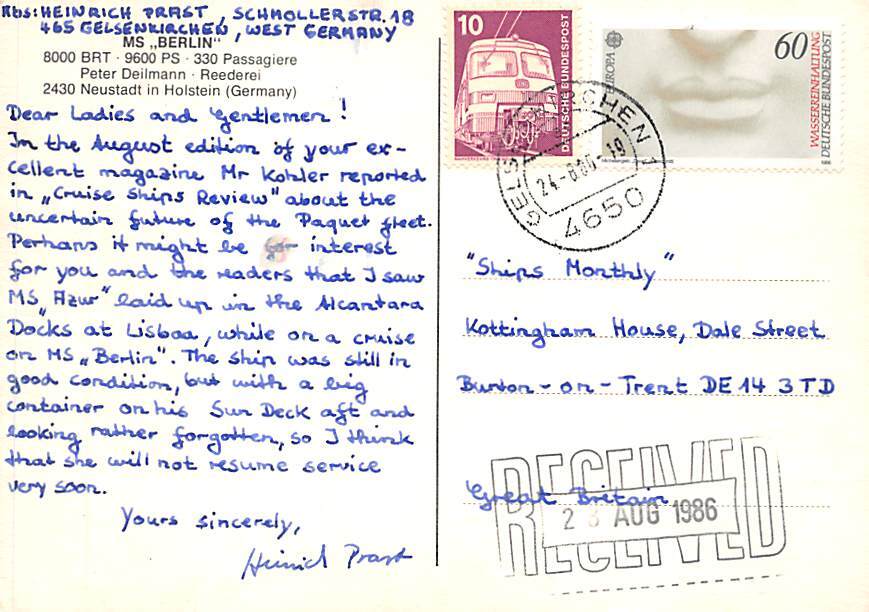 Abs: HEINRICH PRAST, SCHMOLLERSTR. 18
465 GELSENKIRCHEN, WEST GERMANY
MS „BERLIN"
8000 BRT · 9600 PS · 330 Passagiere
Peter Deilmann · Reederei
2430 Neustadt in Holstein (Germany)
Dear Ladies and Gentlemen!
In the August edition of your ex-
cellent magazine Mr Kohler reported
in „Cruise Ships Review" about the
uncertain future of the Paquet fleet.
Perhaps it might be for interest
for you and the readers that I saw
MS „Azur" laid up in the Alcantara
Docks at Lisboa, while on a cruise
on MS „Berlin". The ship was still in
good condition, but with a big
container on his Sun Deck aft and
looking rather forgotten, so I think
that she will not resume service
very soon.
Yours sincerely,
Heinrich Prast
10
DEUTSCHE BUNDESPOST
EUROPA
60
WASSERREINHALTUNG
DEUTSCHE BUNDESPOST
GELSENKIRCHEN 1
4650
"Ships Monthly"
Kottingham House, Dale Street
Burton-on-Trent DE14 3TD
Great Britain
RECEIVED
AUG 1986
RECEIVED